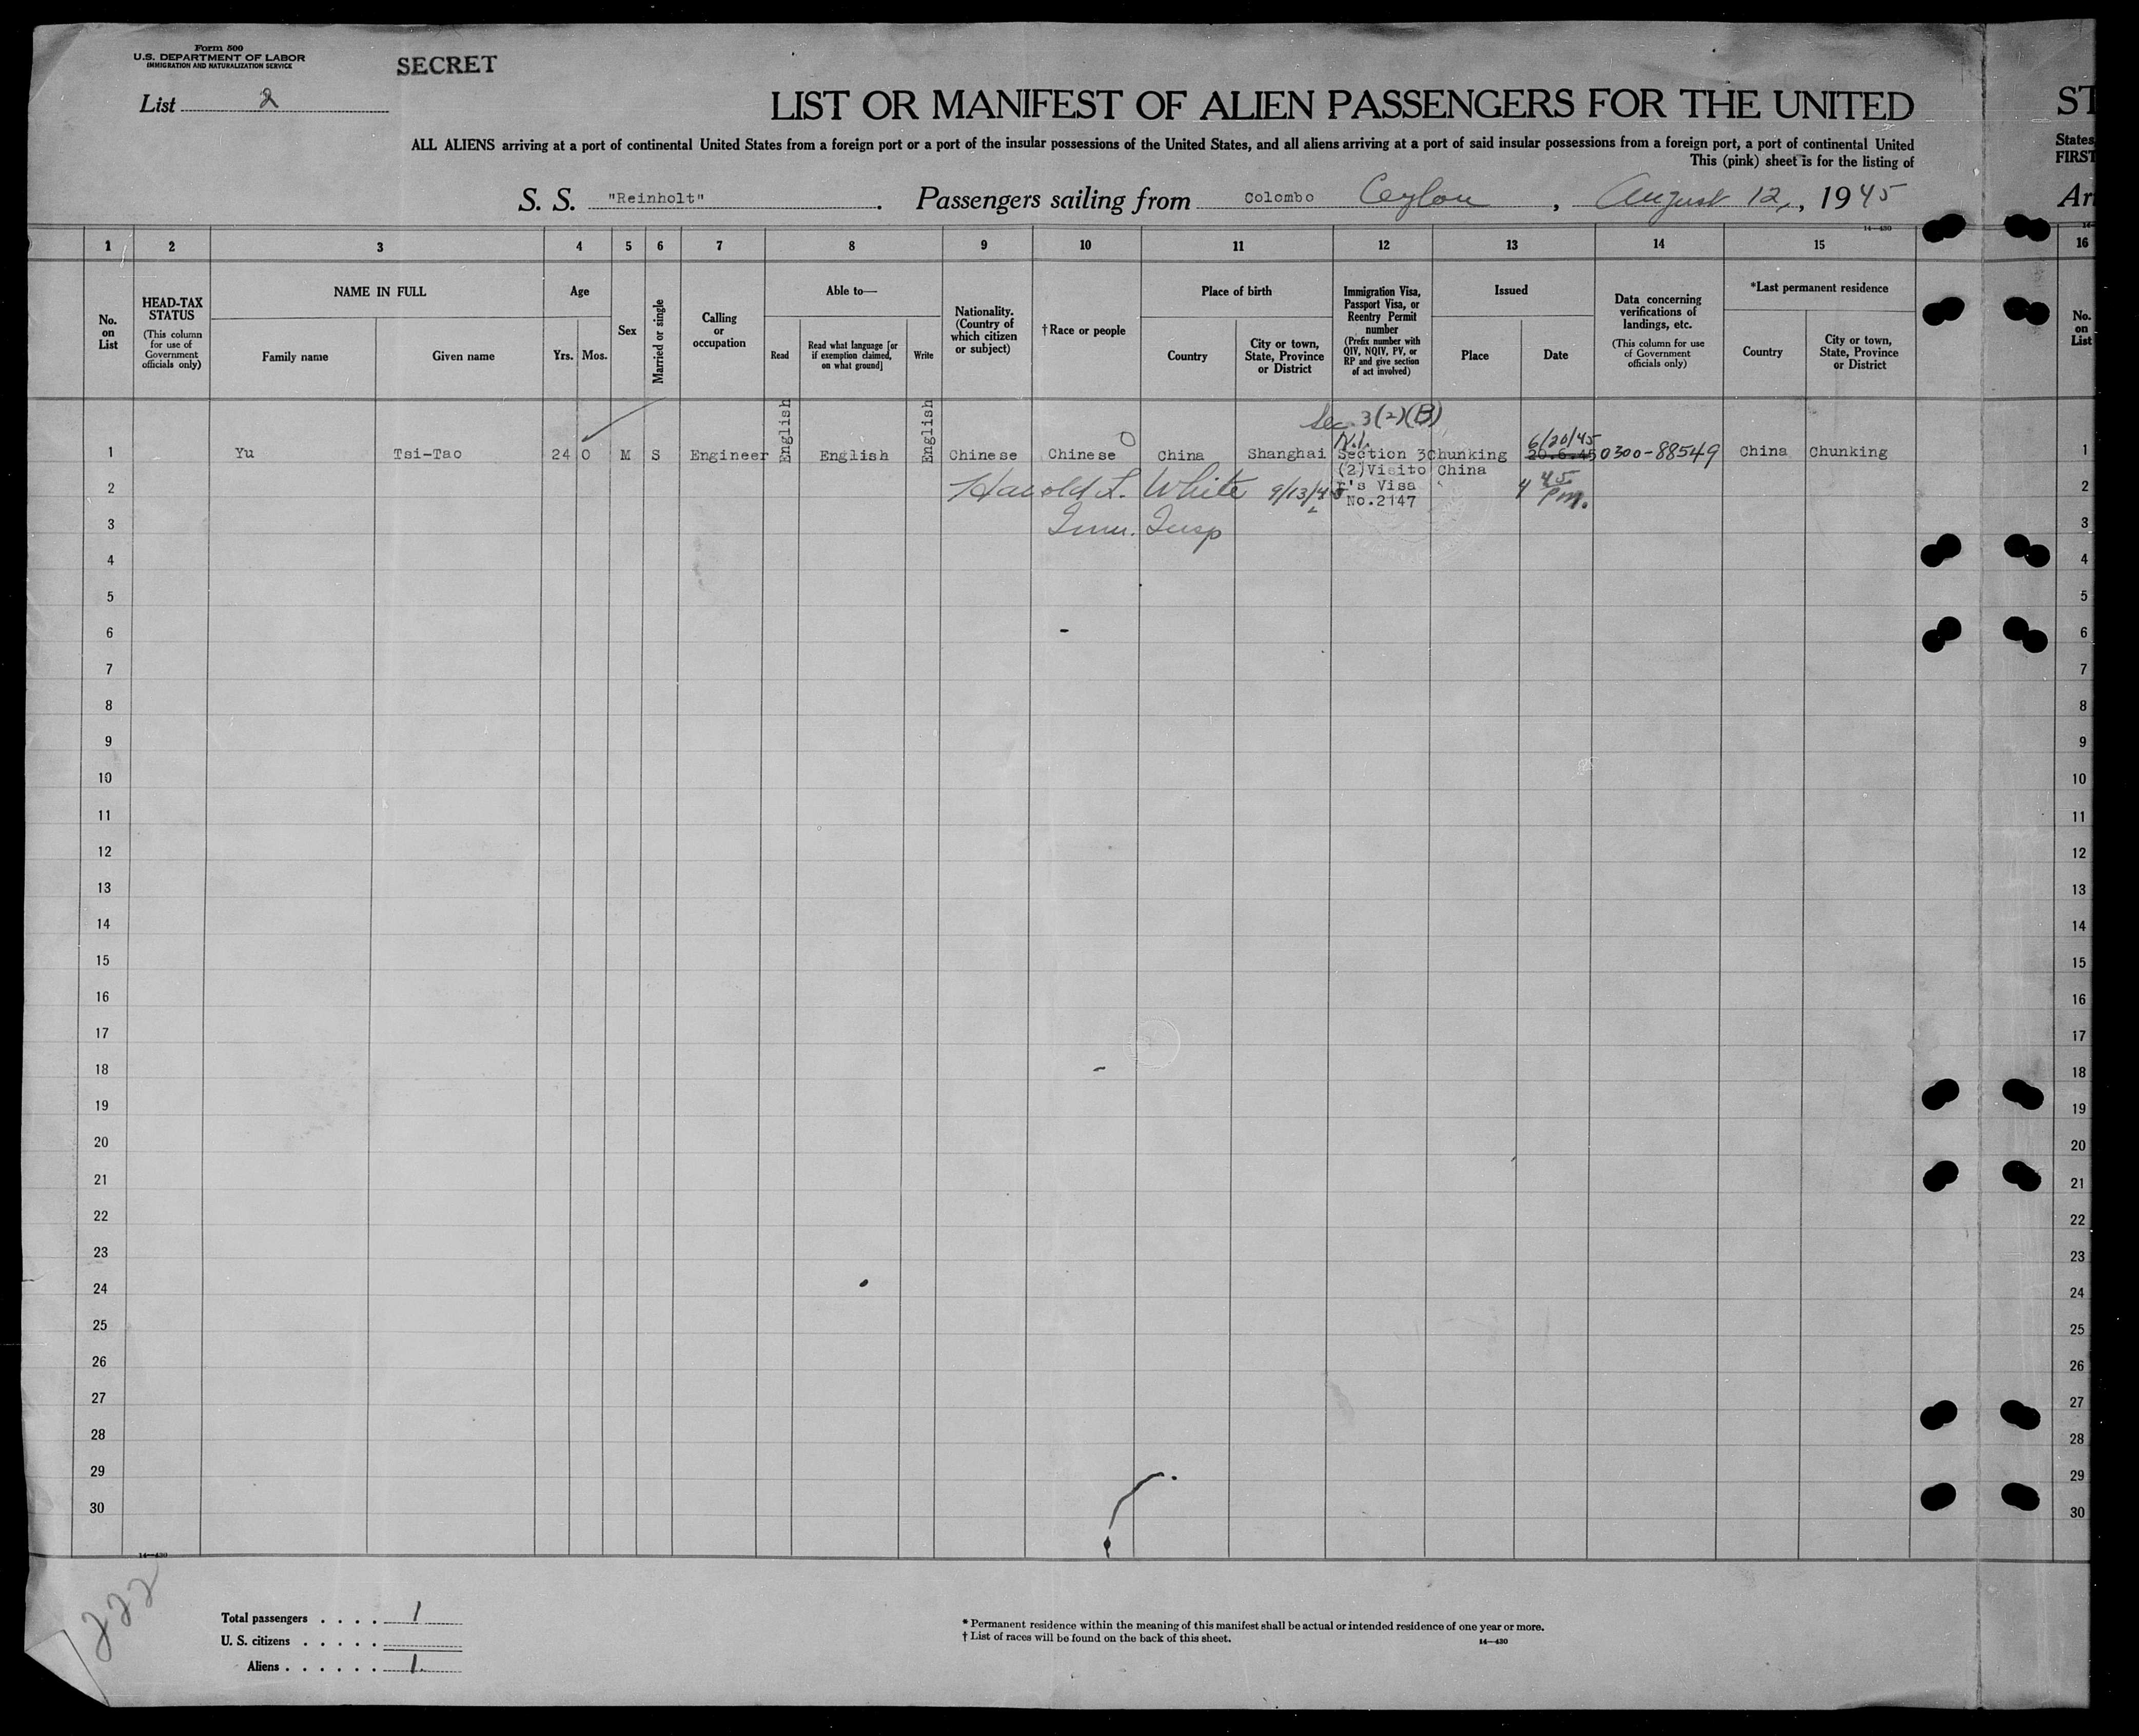 Form 500
U.S. DEPARTMENT OF LABOR
IMMIGRATION AND NATURALIZATION SERVICE
SECRET
List 2
LIST OR MANIFEST OF ALIEN PASSENGERS FOR THE UNITED
ST
ALL ALIENS arriving at a port of continental United States from a foreign port or a port of the insular possessions of the United States, and all aliens arriving at a port of said insular possessions from a foreign port, a port of continental United
States
This (pink) sheet is for the listing of
FIRST
S. S. "Reinholt". Passengers sailing from Colombo Ceylon, August 12, 1945
Arr
14-430
1 2 3 4 5 6 7 8 9 10 11 12 13 14 15 16
No. on List
HEAD-TAX STATUS
(This column for use of Government officials only)
NAME IN FULL
Family name
Given name
Age
Yrs.
Mos.
Sex
Married or single
Calling or occupation
Able to—
Read
Read what language [or if exemption claimed, on what ground]
Write
Nationality. (Country of which citizen or subject)
†Race or people
Place of birth
Country
City or town, State, Province or District
Immigration Visa, Passport Visa, or Reentry Permit number
(Prefix number with QIV, NQIV, PV, or RP and give section of act involved)
Issued
Place
Date
Data concerning verifications of landings, etc.
(This column for use of Government officials only)
*Last permanent residence
Country
City or town, State, Province or District
No. on List
Sec. 3(2)(B)
N.I. 6/20/45
1 Yu Tsi-Tao 24 0 M S Engineer English English English Chinese Chinese China Shanghai Section 3 Chunking 20.6.45 0300-88549 China Chunking 1
(2)Visito China
2 Harold L. White 9/13/45 r's Visa 4 45 pm. 2
No.2147
3 Imm. Insp 3
4 4
5 5
6 6
7 7
8 8
9 9
10 10
11 11
12 12
13 13
14 14
15 15
16 16
17 17
18 18
19 19
20 20
21 21
22 22
23 23
24 24
25 25
26 26
27 27
28 28
29 29
30 30
14-430
222
Total passengers . . . . 1
U. S. citizens . . . . .
Aliens . . . . . . 1
* Permanent residence within the meaning of this manifest shall be actual or intended residence of one year or more.
† List of races will be found on the back of this sheet.
14-430